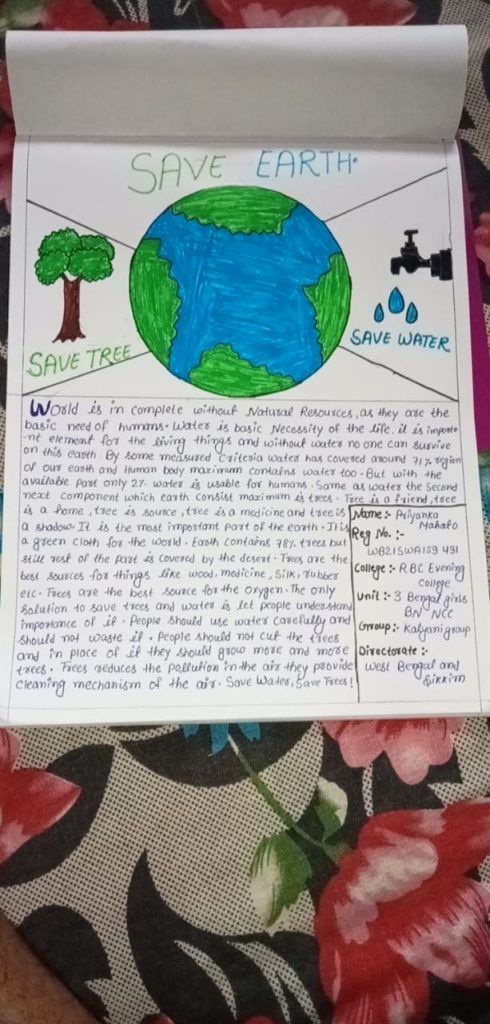 SAVE EARTH.
SAVE TREE
SAVE WATER
World is in complete without Natural Resources, as they are the
basic need of humans. Water is basic Necessity of the life. it is importe
-nt element for the living things and without water no one can survive
on this earth. By some measured Criteria water has covered around 71% region
of our earth and Human body maximum contains water too. But with the
available Part only 2% water is usable for humans. Same as water the Second
next component which earth consist maximum is trees. Tree is a friend, tree
is a home, tree is source, tree is a medicine and tree is
a shadow. It is the most important part of the earth. It is
a green cloth for the world. Earth contains 78% trees but
still rest of the Part is covered by the desert. Trees are the
best sources for things like wood, medicine, Silk, rubber
etc. Trees are the best source for the oxygen. The only
Solution to save trees and water is let people understand
importance of it. People should use water carefully and
should not waste it. People should not cut the trees
and in place of it they should grow more and more
trees. Trees reduces the pallution in the air they provide
cleaning mechanism of the air. Save Water, Save Trees!
Name:- Priyanka
Mahato
Reg No.:-
WB21SWA159431
College:- RBC Evening
College
Unit:- 3 Bengal girls
BN NCC
Group:- Kalyani group
Directorate:-
West Bengal and
Sikkim